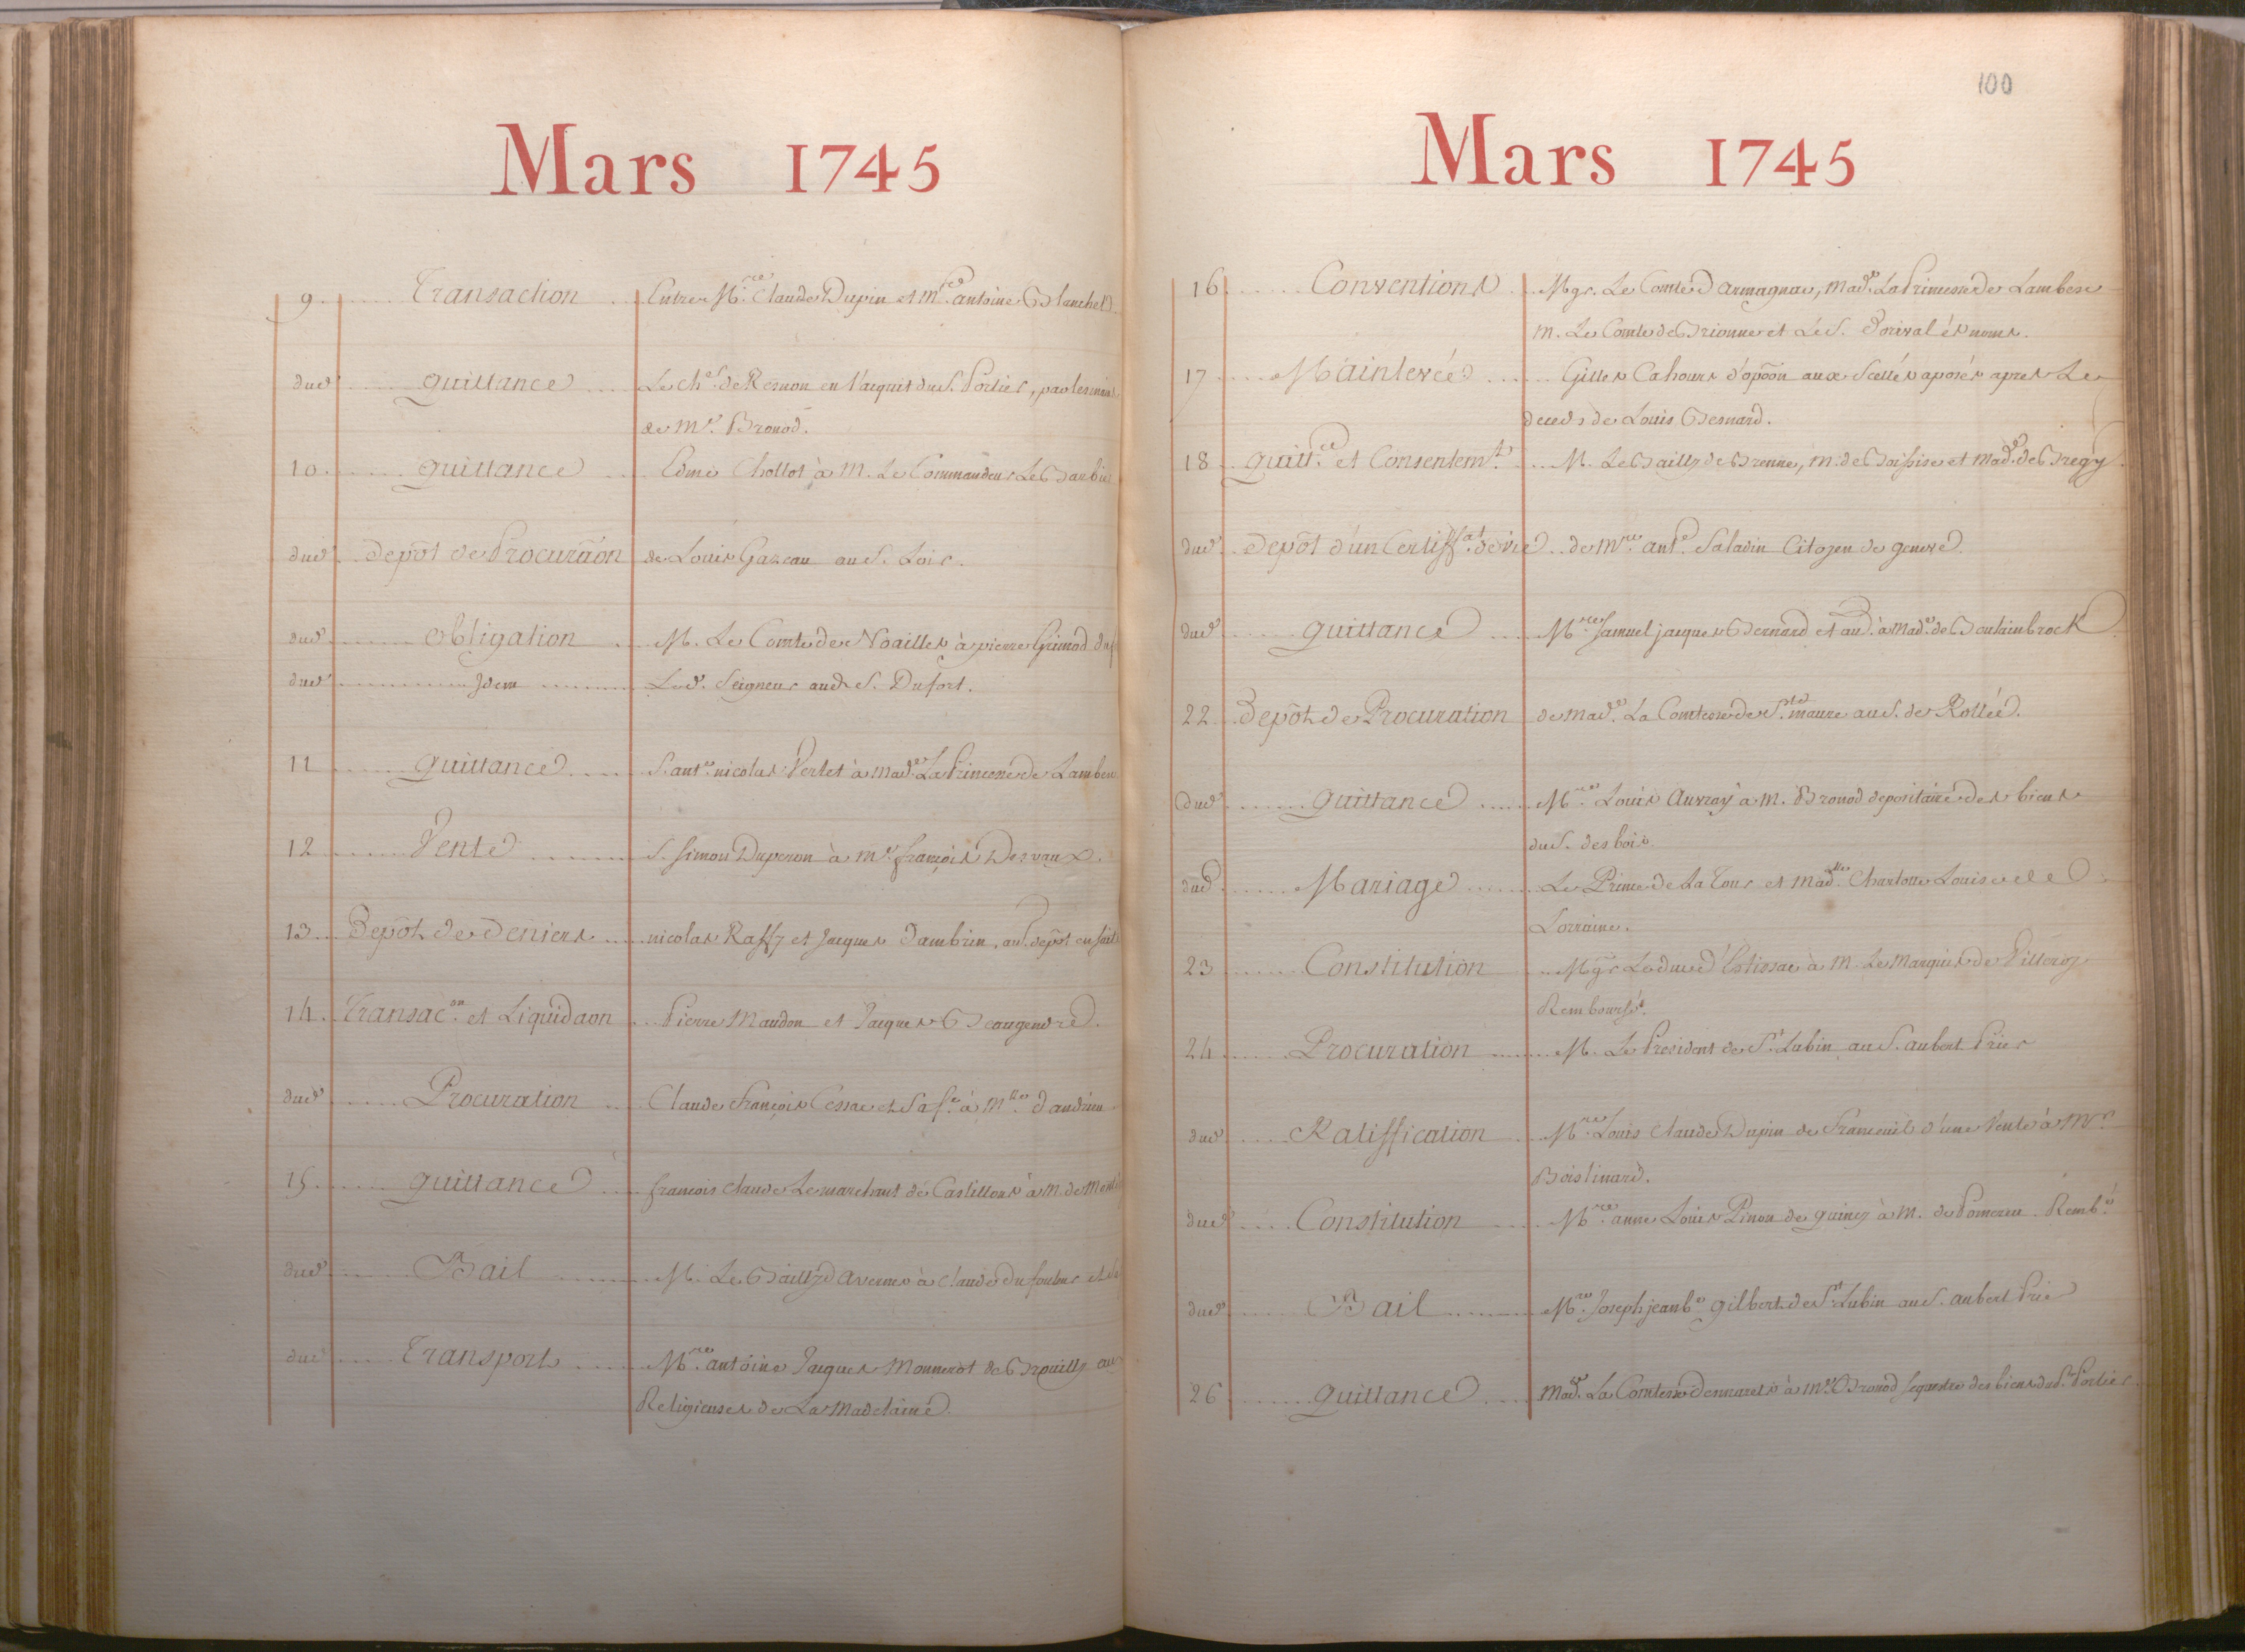 Mars 1745
9 Transaction Entre Mre Claude Dupin et Mre antoine Blanchet
dud quittance Le Cher de Resnon en l'acquit du S. Portier, par les mains
de Mr. Bronod.
10 quittance Edme Chollot à M. Le Commandeur Le
dud depôt de Procuraõn de Louis Gazeau au S. Loir.
dud obligation M. Le Comte de Noailles à pierre Grimod
dud Idem Led. Seigneur aud. S. Dufort.
11 quittance S. ant. nicolas Vertet à Made. La Princesse de
12 Vente S. Simon Duperon à Me. françois Desvaux.
13 Depôt de deniers nicolas Raffy et Jacques Dambrin. aud. depôt en
14 Transacon. et Liquidaon Pierre Maudon et Jacques Beaugendre.
dud Procuration Claude françois Cessac et Sa fe. à Mlle.
15 quittance françois Claude Lemarchant de Castillons à M. de
dud Bail M. Le Bailly d'avernes à Claude
dud Transport Mre. antoine Jacques Monnerot de Brouilly
Religieuses de La Madelaine.
100
Mars 1745
16 Conventions Mgr. Le Comte d'armagnac, Made. La Princesse de Lambesc
M. Le Comte de Brionne et Le S. Dorival ésnoms.
17 Mainlevée Gilles Cahours d'opõon aux Scellés aposés apres Le
deceds de Louis Besnard.
18 quittce. et Consentemt. M. Le Bailly de Brenne, M. de Boissise et Made. de Bregy
dud depôt d'un Certiffat. de vie de Mre ante. Saladin Citoyen de geneve.
dud quittance Mre Samuel jacques Bernard et au. à Made. de Boulainbrock
22 Depôt de Procuration de Made. La Comtesse de Ste maure au S. de Rollée.
dud quittance Mre. Louis Auvray à M. Bronod depositaire des biens
du S. desbois.
dud Mariage Le Prince de La Tour et Madlle. Charlotte Louise de
Lorraine.
23 Constitution Mgr. Le duc d'Estissac à M. Le Marquis de Villeroy
Remboursé.
24 Procuration M. Le President de St. Lubin au S. aubert Prier
dud Ratiffication Mre. Louis Claude Dupin de Franceuil d'une Vente à Mr.
Boislinard.
dud Constitution Mre. anne Louis Pinon de quincy à M. de Pomereu Rembé.
dud Bail Mre. Joseph jeanbe. gilbert de St. Lubin au S. aubert Prié
26 quittance Made. La Comtesse à Me. Bronod sequestre des biens dud. Sr. Portier.